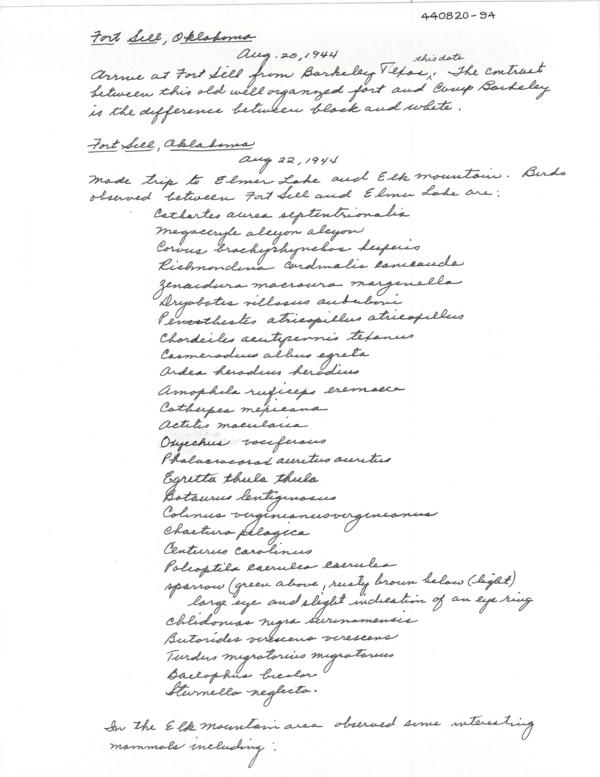 440820-94
Fort Sill, Oklahoma
Aug. 20, 1944
this date
Arrive at Fort Sill from Barkeley Texas. The contrast
between this old well organized fort and Camp Barkeley
is the difference between black and white.
Fort Sill, Oklahoma
Aug 22, 1944
Made trip to Elmer Lake and Elk Mountain. Birds
observed between Fort Sill and Elmer Lake are:
Cathartes aurea septentrionalis
Megaceryle alcyon alcyon
Corvus brachyrhynchos hesperis
Richmondena cardinalis canicauda
Zenaidura macroura marginella
Dryobates villosus auduboni
Penthestes atricapillus atricapillus
Chordeiles acutipennis texensis
Casmerodius albus egretta
Ardea herodius herodius
Aimophila ruficeps eremoeca
Catherpes mexicana
Actitis macularia
Oxyechus vociferous
Phalacrocorax auritus auritus
Egretta thula thula
Botaurus lentiginosus
Colinus virginianus virginianus
Chaetura pelagica
Centurus carolinus
Polioptila caerulea caerulea
sparrow (green above, rusty brown below (light)
large eye and slight indication of an eye ring
Chlidonias nigra surinamensis
Butorides virescens virescens
Turdus migratorius migratorius
Baeolophus bicolor
Sturnella neglecta.
In the Elk Mountain area observed some interesting
mammals including: